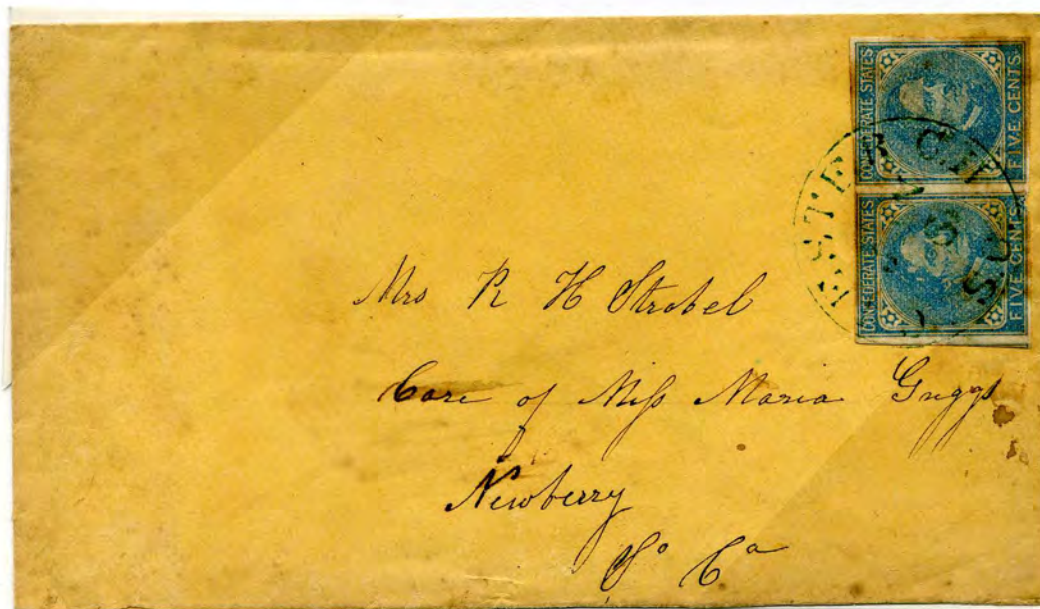 CONFEDERATE STATES
FIVE CENTS
CONFEDERATE STATES
FIVE CENTS
ESTER C.H. S.C.
Mrs R H Strobel
Care of Miſs Maria Griggs
Newberry
So Ca